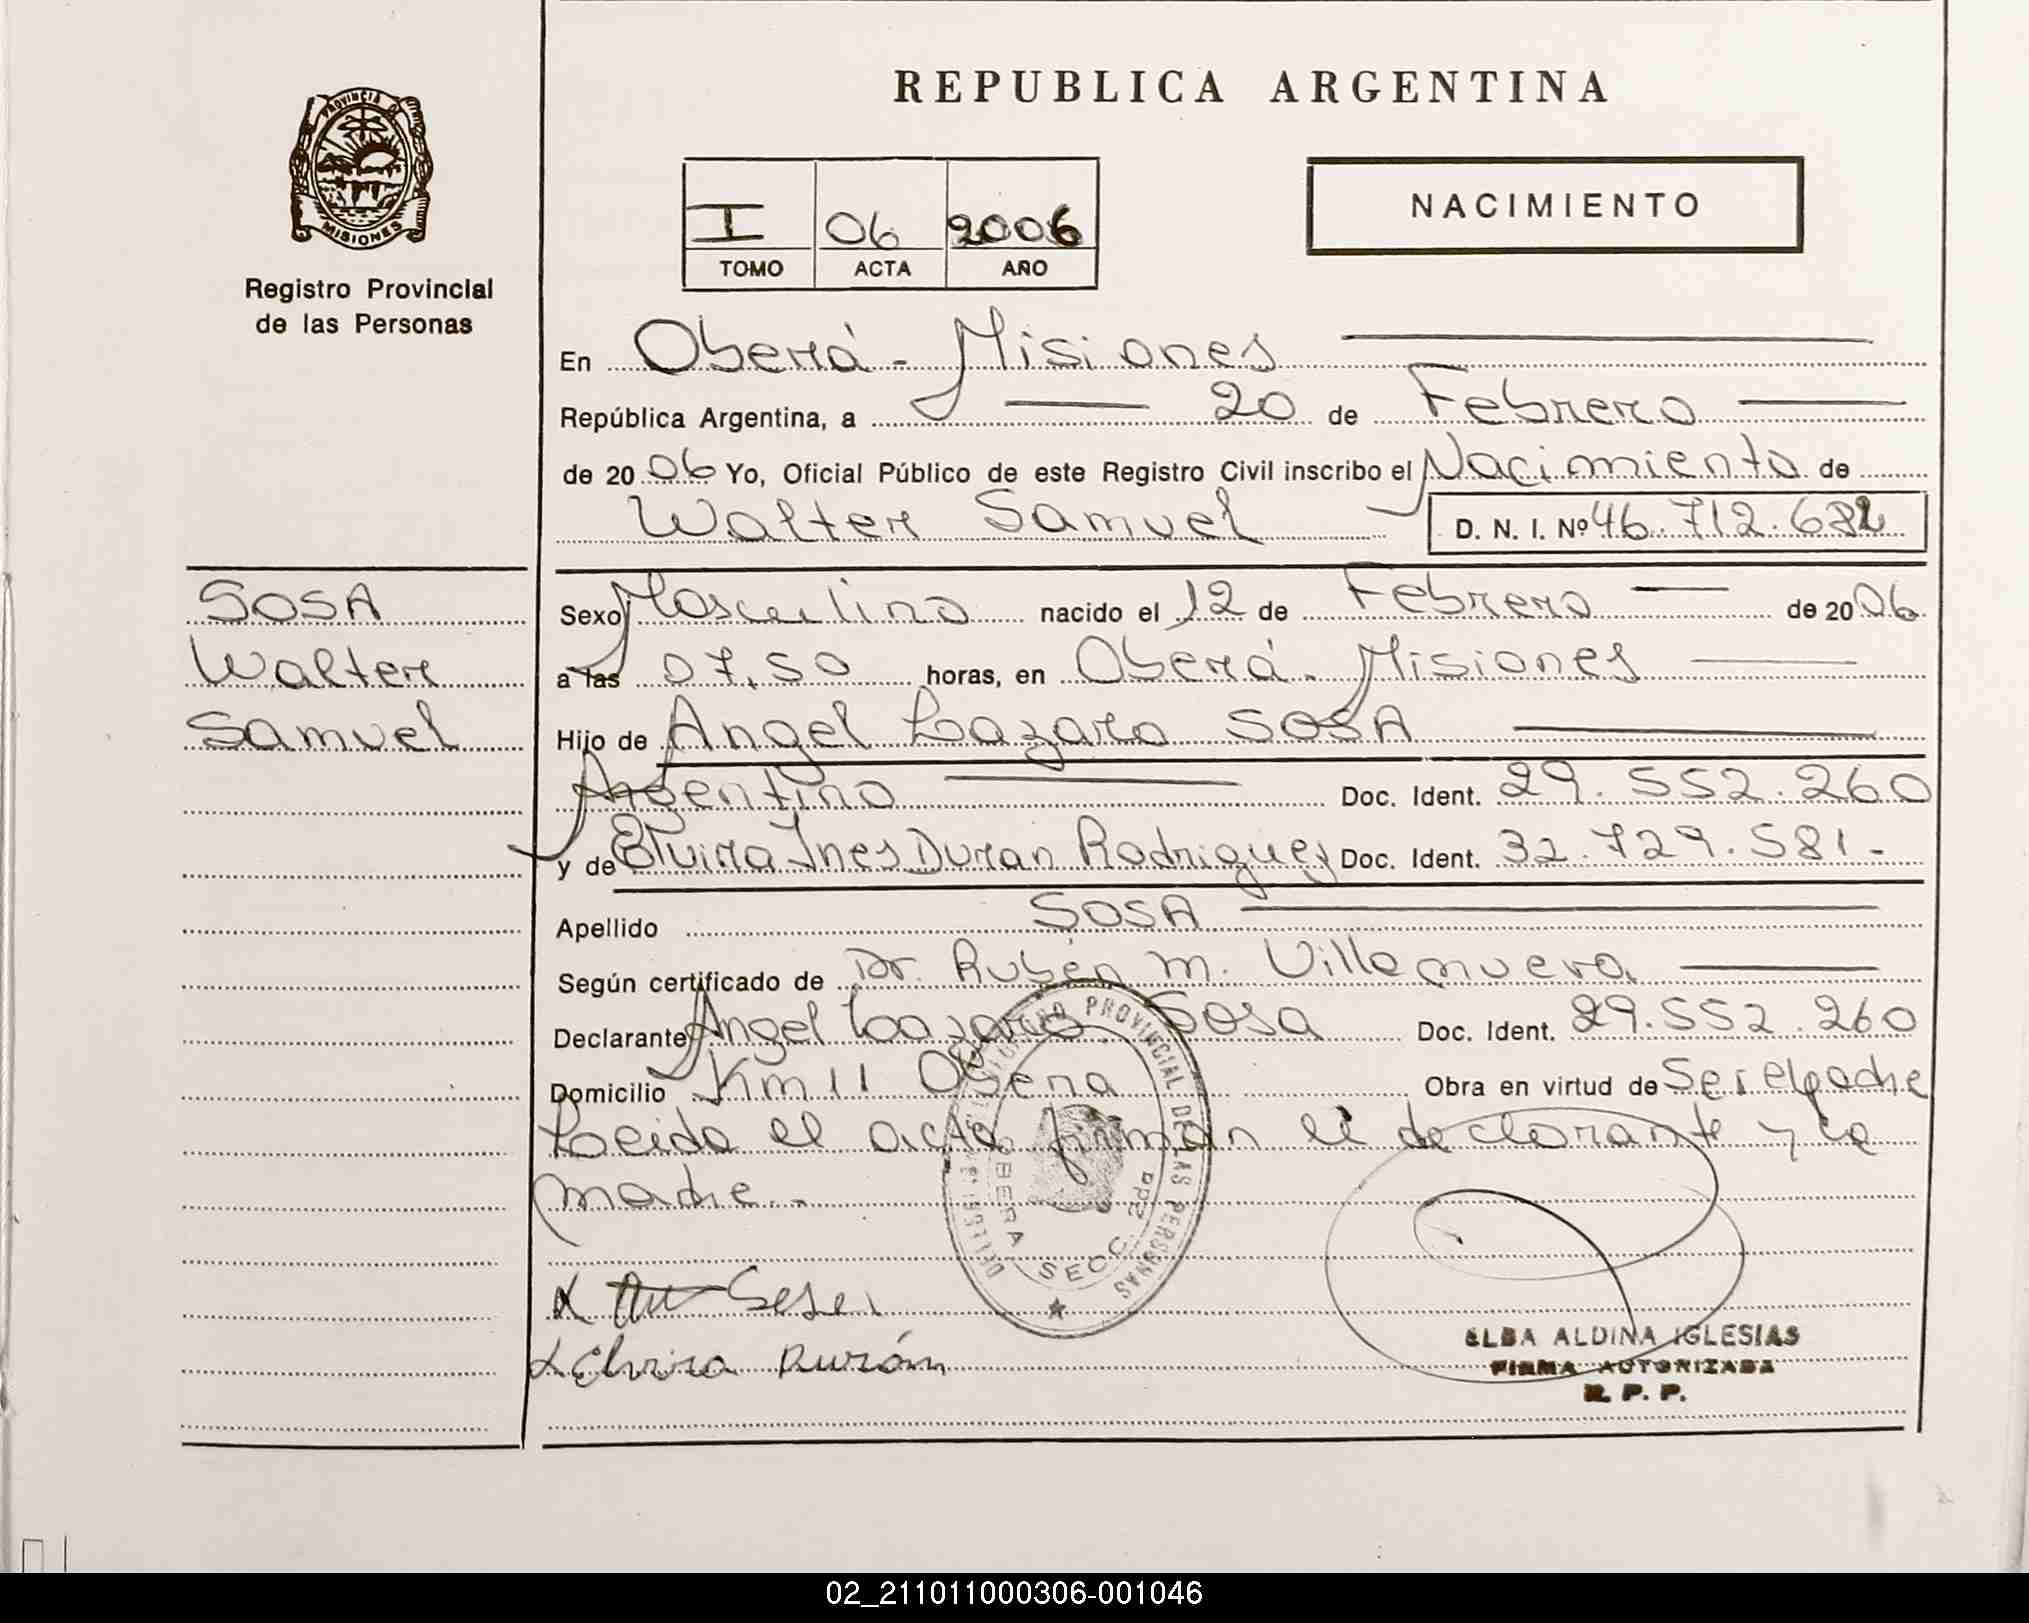 REPUBLICA ARGENTINA
PROVINCIA DE
MISIONES
Registro Provincial
de las Personas
I 06 2006
TOMO ACTA AÑO
NACIMIENTO
En Oberá - Misiones
República Argentina, a 20 de Febrero
de 20 06 Yo, Oficial Público de este Registro Civil inscribo el Nacimiento de
Walter Samuel D. N. I. Nº 46.712.682
SOSA
Walter
Samuel
Sexo Masculino nacido el 12 de Febrero de 20 06
a las 07,50 horas, en Oberá - Misiones
Hijo de Angel Lazaro SOSA
Argentino Doc. Ident. 29.552.260
y de Elvira Ines Duran Rodriguez Doc. Ident. 32.729.581-
Apellido SOSA
Según certificado de Dr. Rubén M. Villanueva
Declarante Angel Lazaro Sosa Doc. Ident. 29.552.260
Domicilio Km 11 Obera Obra en virtud de Ser el padre
Leida el acta firman el declarante y la
madre.-
PROVINCIAL DE LAS PERSONAS
OBERA SECC. 2da
Sosa
Elvira Durán
ELBA ALDINA IGLESIAS
FIRMA AUTORIZADA
R. P. P.
02_211011000306-001046